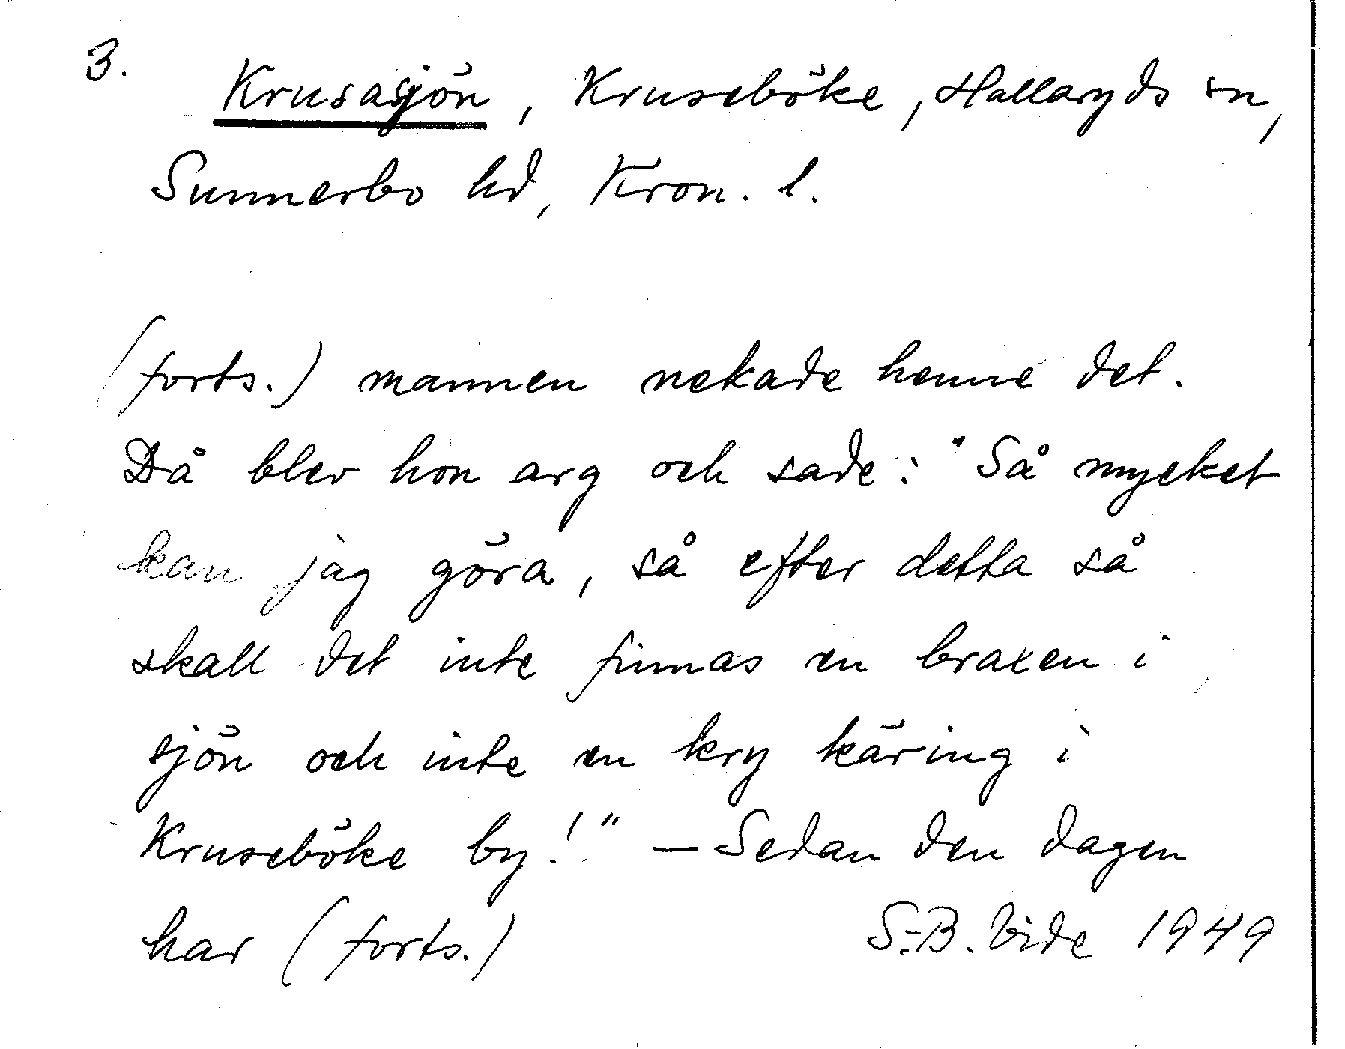 3.
Krusasjön, Kruseböke, Hallaryds sn,
Sunnerbo hd, Kron. l.
(forts.) mannen nekade henne det.
Då blev hon arg och sade: "Så mycket
kan jag göra, så efter detta så
skall det inte finnas en braxen i
sjön och inte en kry käring i
Kruseböke by!" — Sedan den dagen
har (forts.)
S.-B. Vide 1949